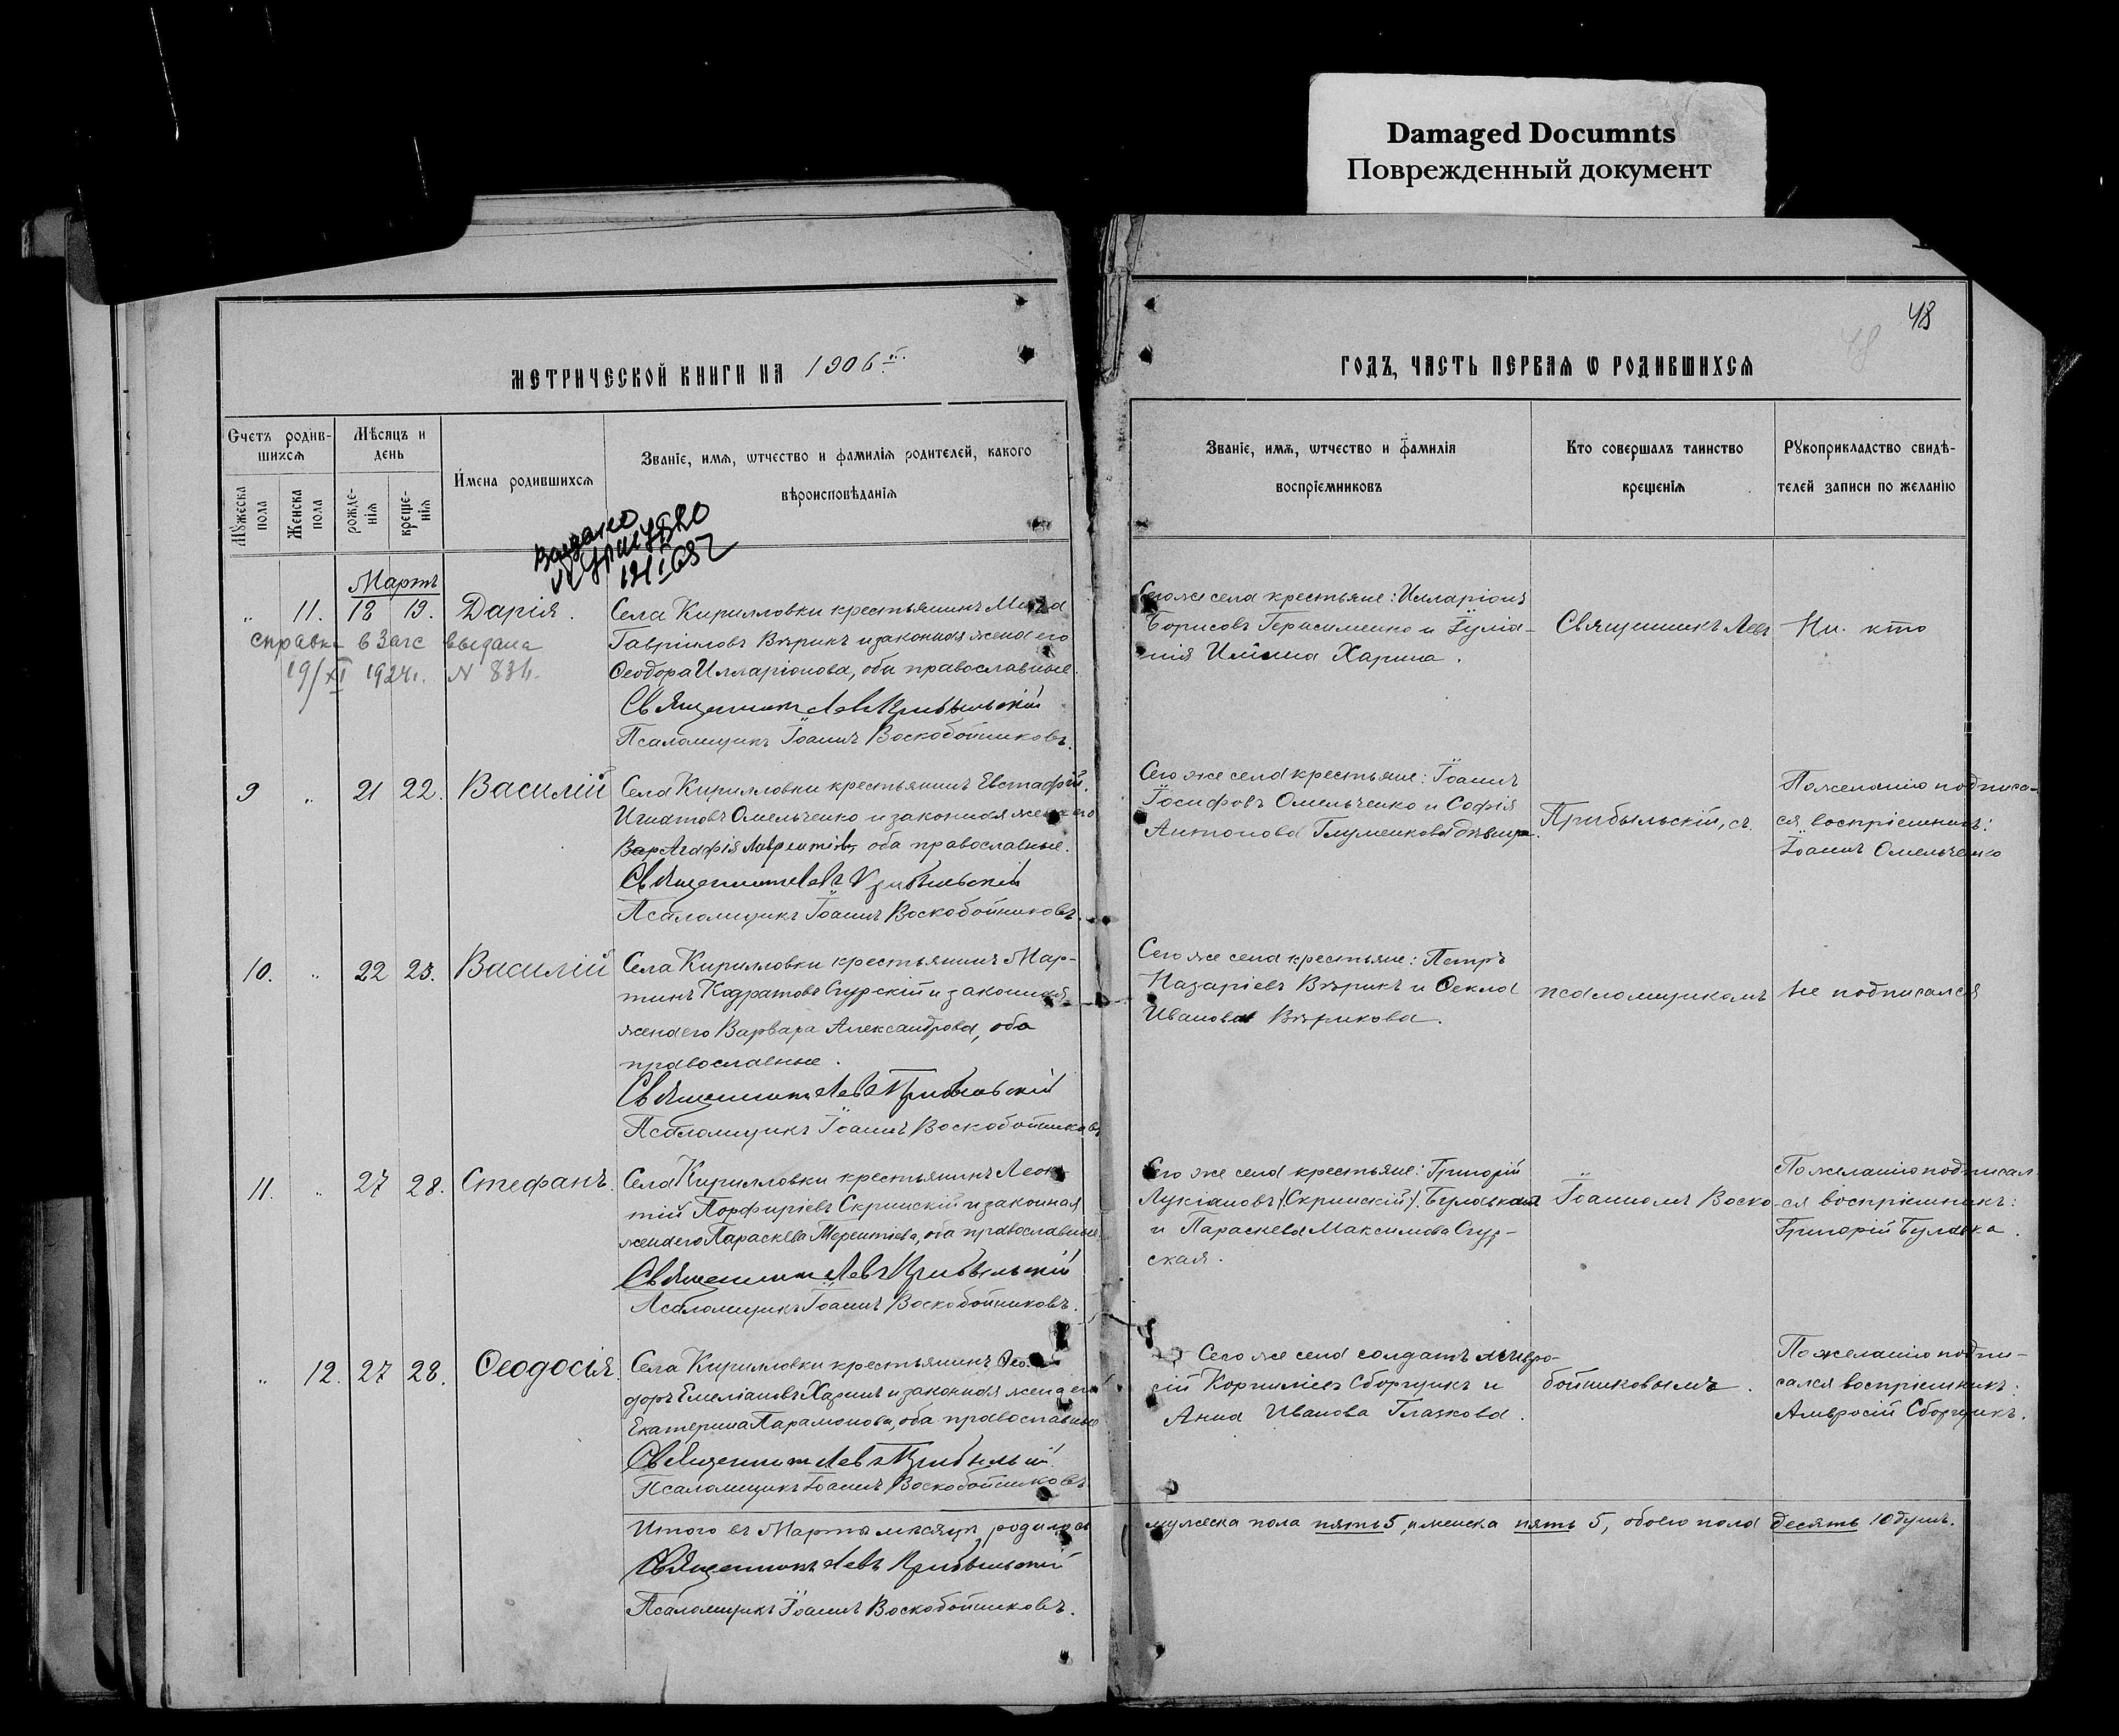 Damaged Documnts
Поврежденный документ
48
МЕТРИЧЕСКОЙ КНИГИ НА 1906
ГОДЪ, ЧАСТЬ ПЕРВАЯ Ѡ РОДИВШИХСЯ
Счетъ родив-
шихся
Мѣсяцъ и
день
Имена родившихся
Званіе, имя, ѿчество и фамилія родителей, какого
вѣроисповѣданія
Мужеска
пола
Женска
пола
рожде-
нія
креще-
нія
Званіе, имя, ѿчество и фамилія
воспріемниковъ
Кто совершалъ таинство
крещенія
Рукоприкладство свидѣ-
телей записи по желанію
Мартъ
" 11. 18 19. Дарія.
справка в Загс выдана
19/XI 1924г. N 834.
Села Кирилловки крестьянинъ
Гавріиловъ Вѣрикъ и законная жена его
Ѳеодора Илларіонова, оба православные.
Священникъ Левъ Прибыльскій
Псаломщикъ Іоаннъ Воскобойниковъ.
Сего же села крестьяне: Илларіонъ
Борисовъ Герасименко и Іуліа-
нія Харина.
Священникъ Левъ
Ни кто
9 " 21 22. Василій
Села Кирилловки крестьянинъ Евстафій
Игнатовъ Омельченко и законная жена его
Агафія оба православные.
Священникъ Левъ Прибыльскій
Псаломщикъ Іоаннъ Воскобойниковъ.
Сего же села крестьяне: Іоаннъ
Іосифовъ Омельченко и Софія
Антонова Глуменкова дѣвица.
Прибыльскій, съ
По желанію подписа-
ся воспріемникъ:
Іоаннъ Омельченко
10. " 22 23. Василій
Села Кирилловки крестьянинъ Мар-
тинъ Кодратовъ Сгурскій и законная
жена его Варвара Александрова, оба
православные.
Священникъ Левъ Прибыльскій
Псаломщикъ Іоаннъ Воскобойниковъ
Сего же села крестьяне: Петръ
Назаріевъ Вѣрикъ и Ѳекла
Иванова Вѣрикова.
псаломщикомъ
Не подписался
11. " 27 28. Стефанъ.
Села Кирилловки крестьянинъ Леон-
тій Порфиріевъ Скринскій и законная
жена его Параскева Терентіева, оба православные
Священникъ Левъ Прибыльскій
Псаломщикъ Іоаннъ Воскобойниковъ.
Сего же села крестьяне: Григорій
Лукіановъ (Скринскій)
и Параскева Максимова Сгур-
ская.
Іоанномъ Воско-
По желанію подписал
ся воспріемникъ:
Григорій Булавка.
" 12. 27 28. Ѳеодосія.
Села Кирилловки крестьянинъ Ѳео-
доръ Емеліановъ Харинъ и законная жена его
Екатерина Парамонова, оба православные
Священникъ Левъ Прибыльскій.
Псаломщикъ Іоаннъ Воскобойниковъ
Сего же села солдатъ Амвро-
сій Корниліевъ Сборщикъ и
Анна Иванова Глазкова.
бойниковымъ.
По желанію подпи-
сался воспріемникъ:
Амвросій Сборщикъ.
Итого въ Мартѣ мѣсяцѣ родилось
мужеска пола пять 5, женска пять 5, обоего пола десять 10 душъ.
Священникъ Левъ Прибыльскій
Псаломщикъ Іоаннъ Воскобойниковъ.